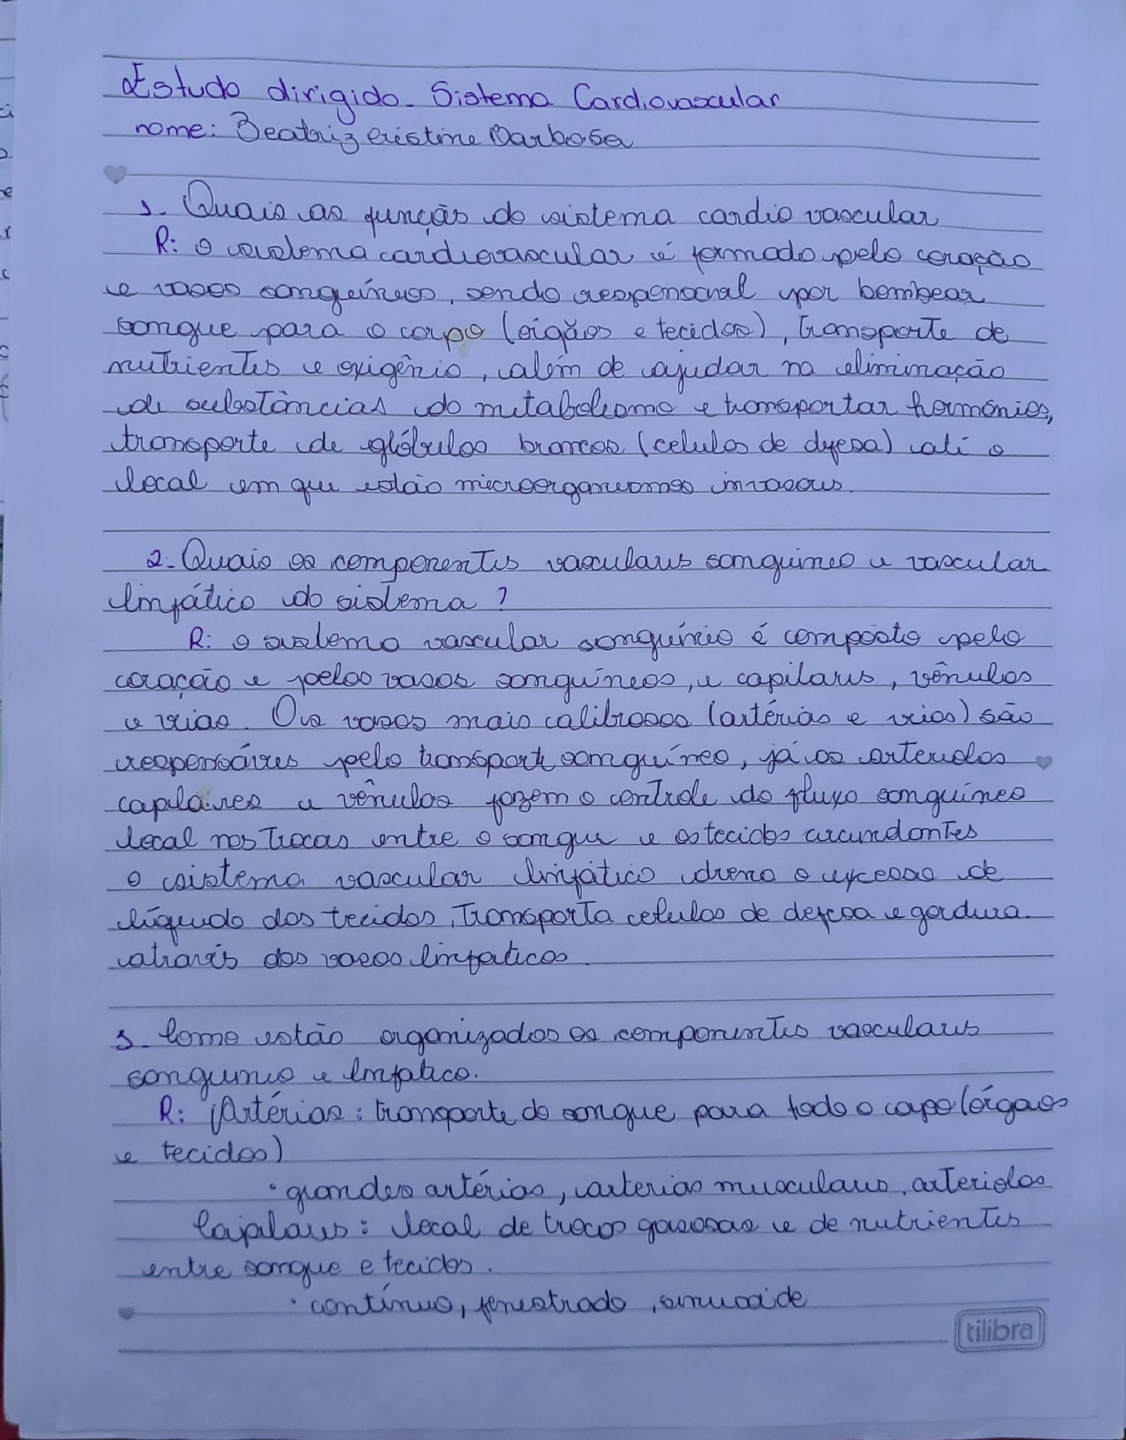 Estudo dirigido - Sistema Cardiovascular
nome: Beatriz cristine Barbosa
1. Quais as função do sistema cardio vascular
R: o sistema cardiovascular é formado pelo coração
e vasos sanguíneos, sendo responsavel por bombear
sangue para o corpo (orgãos e tecidos), transporte de
nutrientes e oxigênio, além de ajudar na eliminação
de substâncias do metabolismo e transportar hormônios,
transporte de glóbulos brancos (celulas de defesa) até o
local em que estão microorganismos invasores.
2- Quais os componentes vasculares sanguineo e vascular
linfático do sistema ?
R: o sistema vascular sanguíneo é composto pelo
coração e pelos vasos sanguíneos, e capilares, vênulas
e veias. Os vasos mais calibrosos (artérias e veias) são
responsáveis pelo transporte sanguíneo, já as arteriolas
capilaires e vênulas fazem o controle do fluxo sanguíneo
local nas trocas entre o sangue e os tecidos circundantes
o sistema vascular linfático drena o excesso de
líquido dos tecidos, transporta celulas de defesa e gordura
através dos vasos linfaticos.
3- Como estão organizados os componentes vasculares
sanguineo e linfatico.
R: Artérias: transporte do sangue para todo o corpo (órgãos
e tecidos)
• grandes artérias, arterias musculares, arteriolas
Capilares: local de trocas gasosas e de nutrientes
entre sangue e tecidos.
• contínuo, fenestrado, sinusoide
tilibra